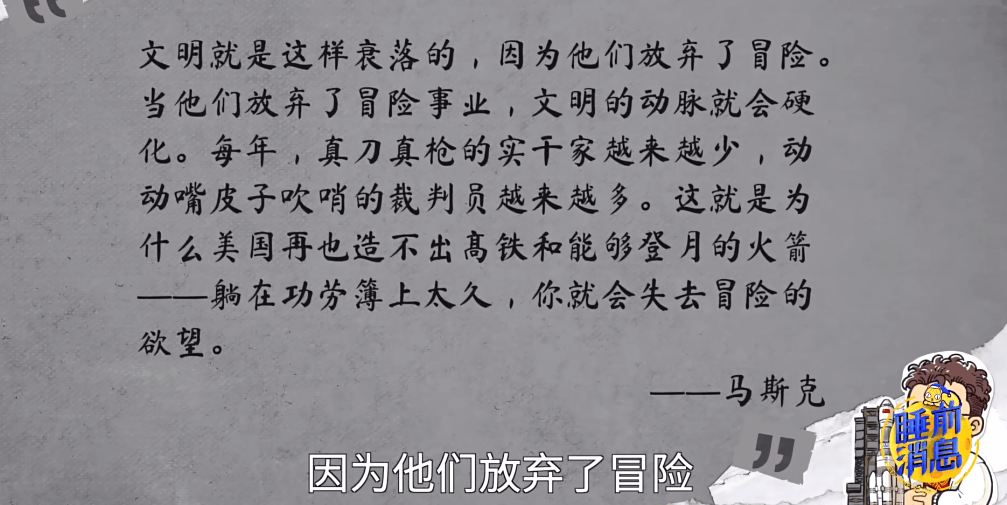 文明就是这样衰落的，因为他们放弃了冒险。
当他们放弃了冒险事业，文明的动脉就会硬
化。每年，真刀真枪的实干家越来越少，动
动嘴皮子吹哨的裁判员越来越多。这就是为
什么美国再也造不出高铁和能够登月的火箭
——躺在功劳簿上太久，你就会失去冒险的
欲望。
——马斯克
睡前
消息
因为他们放弃了冒险